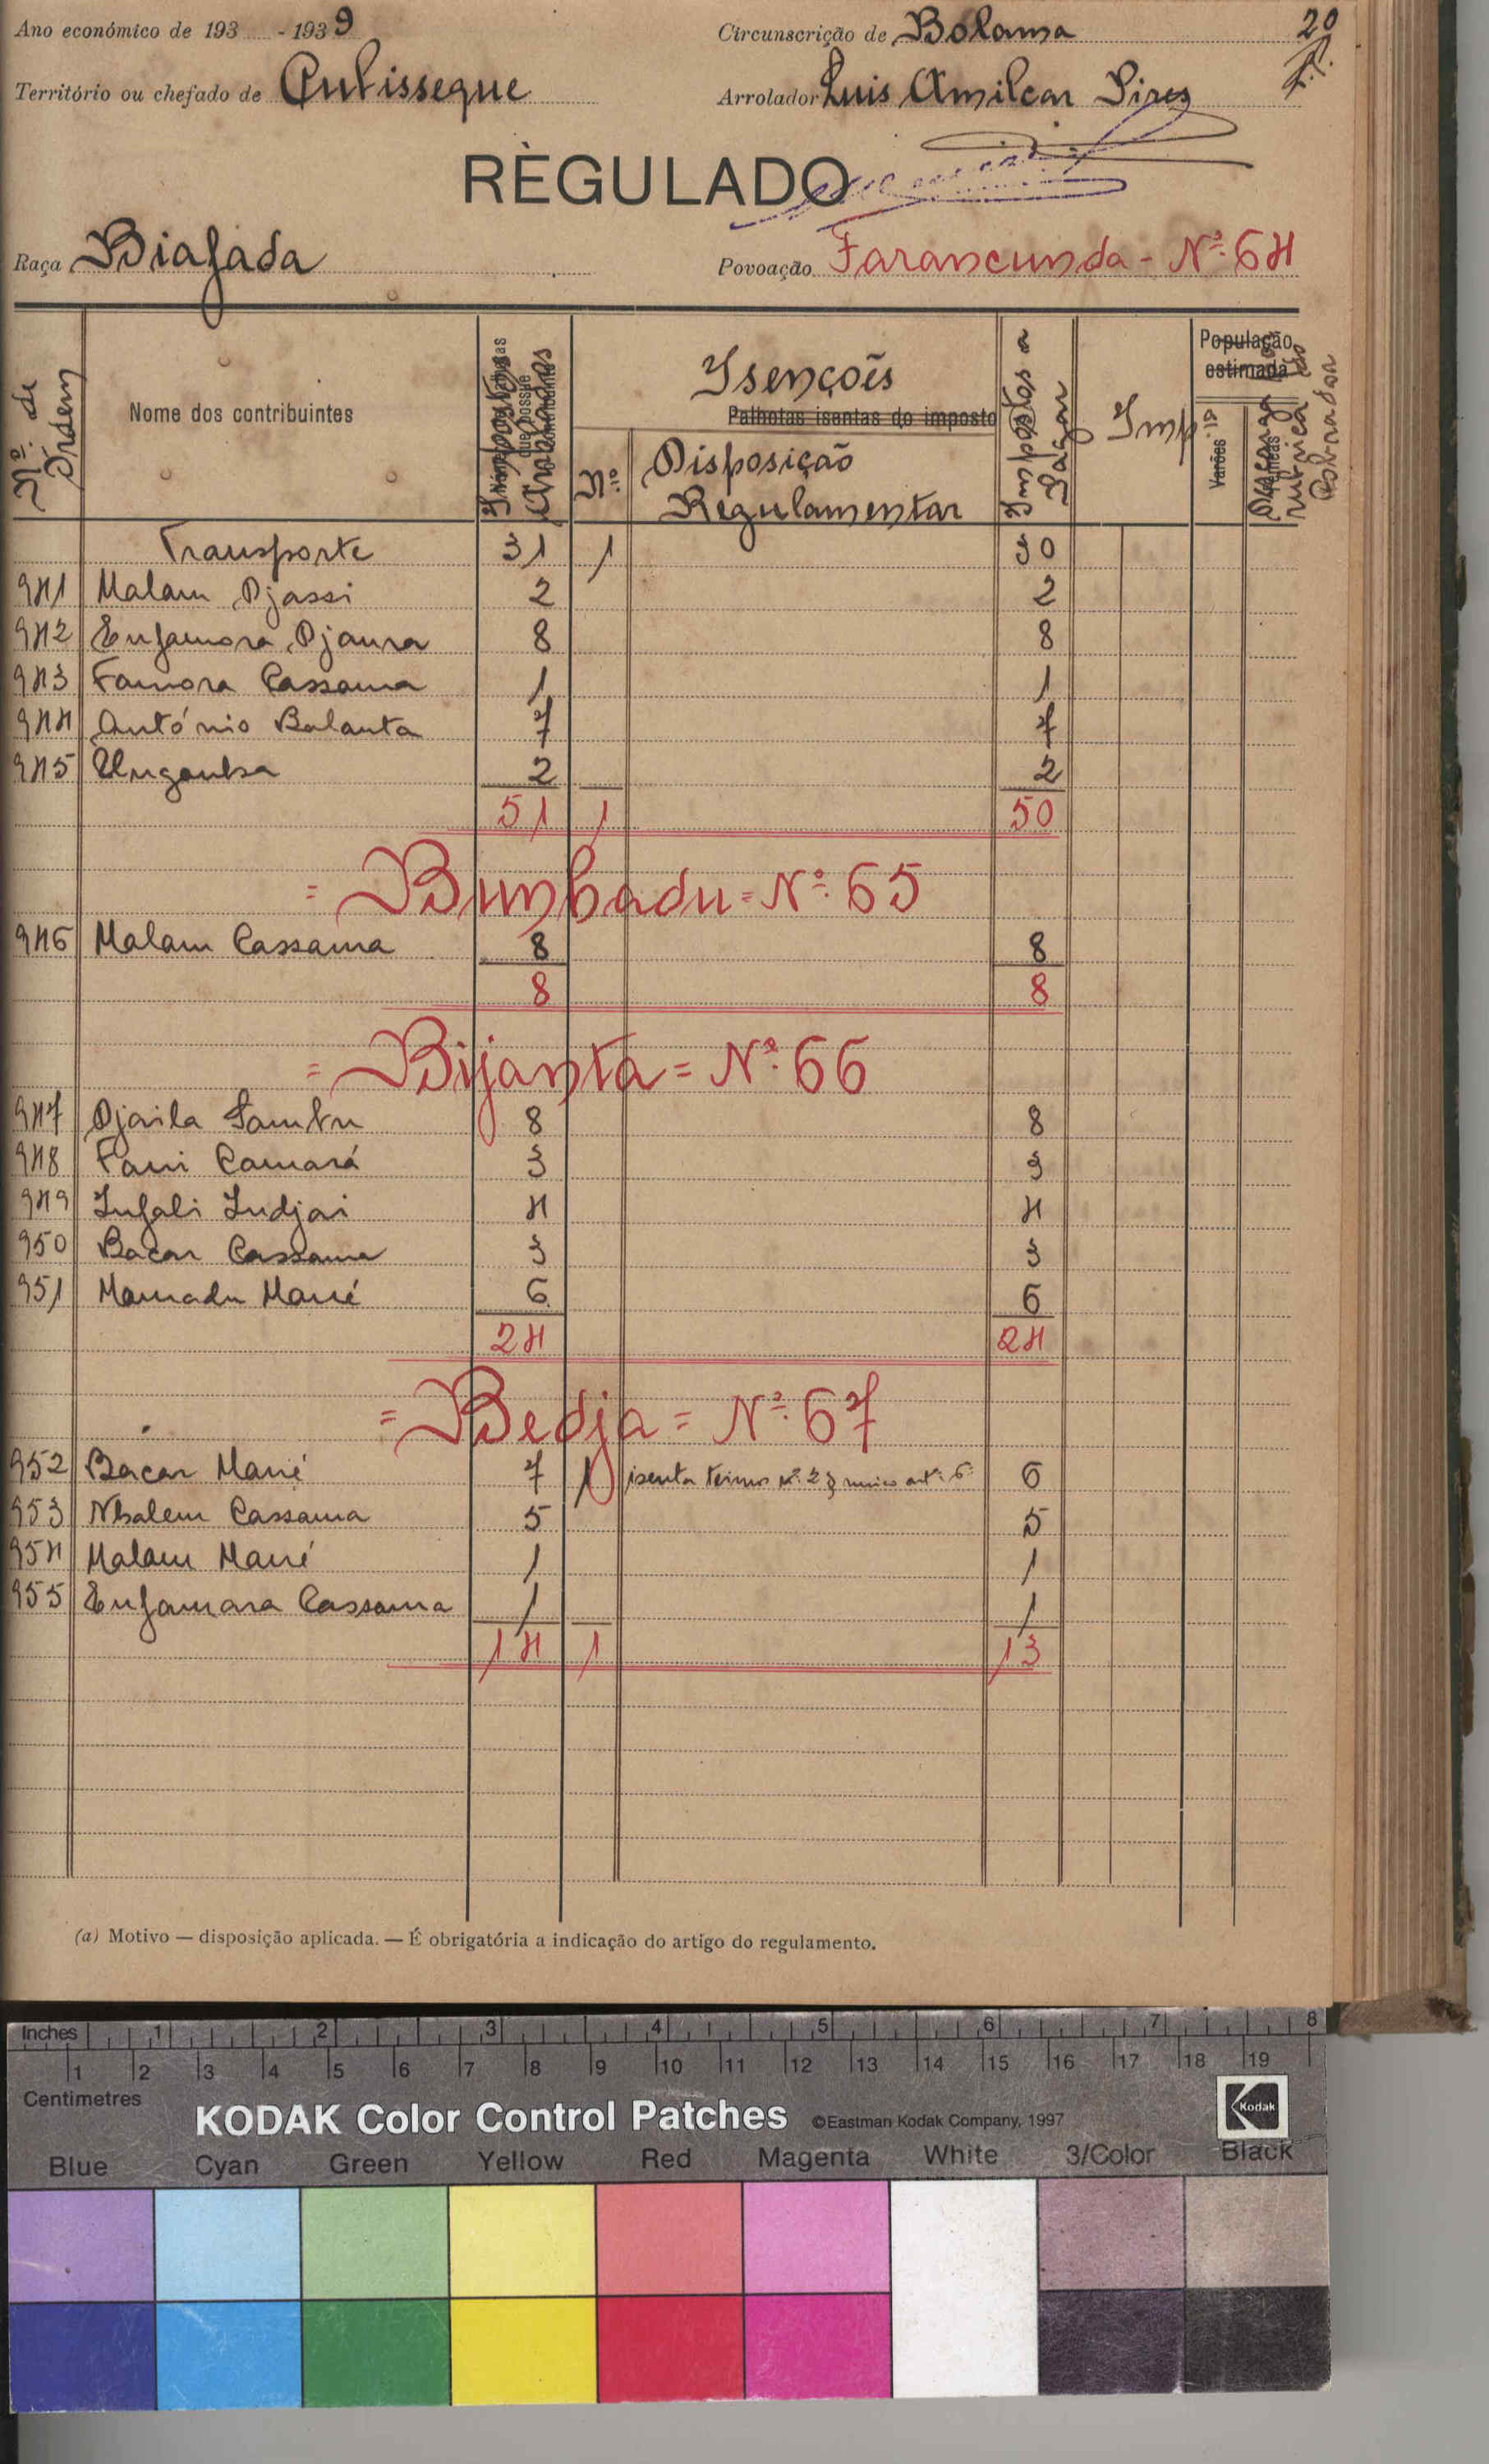 Ano económico de 193 - 1939
Circunscrição de Bolama
20
Território ou chefado de Cubisseque
Arrolador Luis Amilcar Pires
RÈGULADO
Raça Biafada
Povoação Farancunda - Nº. 64
Nº. de Ordem
Nome dos contribuintes
Impostos Arrolados
Isenções
Palhotas isentas do imposto
Nº.
Disposição Regulamentar
Impostos a Pagar
Imp
População estimada
Varões
Descarga rubrica do Cobrador
Transporte 31 1 30
941 Malam Djassi 2 2
942 Enfamora Djaura 8 8
943 Famora Cassama 1 1
944 António Balanta 7 7
945 Ungomba 2 2
51 1 50
= Bunhadu = Nº. 65
946 Malam Cassama 8 8
8 8
= Bijanta = Nº. 66
947 Djaila Sambu 8 8
948 Fani Camará 3 3
949 Infali Indjai 4 4
950 Bacar Cassama 3 3
951 Mamadu Mané 6 6
24 24
= Bedja = Nº. 67
952 Bacar Mané 7 1 isenta termos nº. 2 § unico artº. 6º 6
953 Nhalem Cassama 5 5
954 Malam Mané 1 1
955 Enfamara Cassama 1 1
14 1 13
(a) Motivo — disposição aplicada. — É obrigatória a indicação do artigo do regulamento.
Inches 1 2 3 4 5 6 7 8
1 2 3 4 5 6 7 8 9 10 11 12 13 14 15 16 17 18 19
Centimetres
KODAK Color Control Patches ©Eastman Kodak Company, 1997 Kodak
Blue Cyan Green Yellow Red Magenta White 3/Color Black